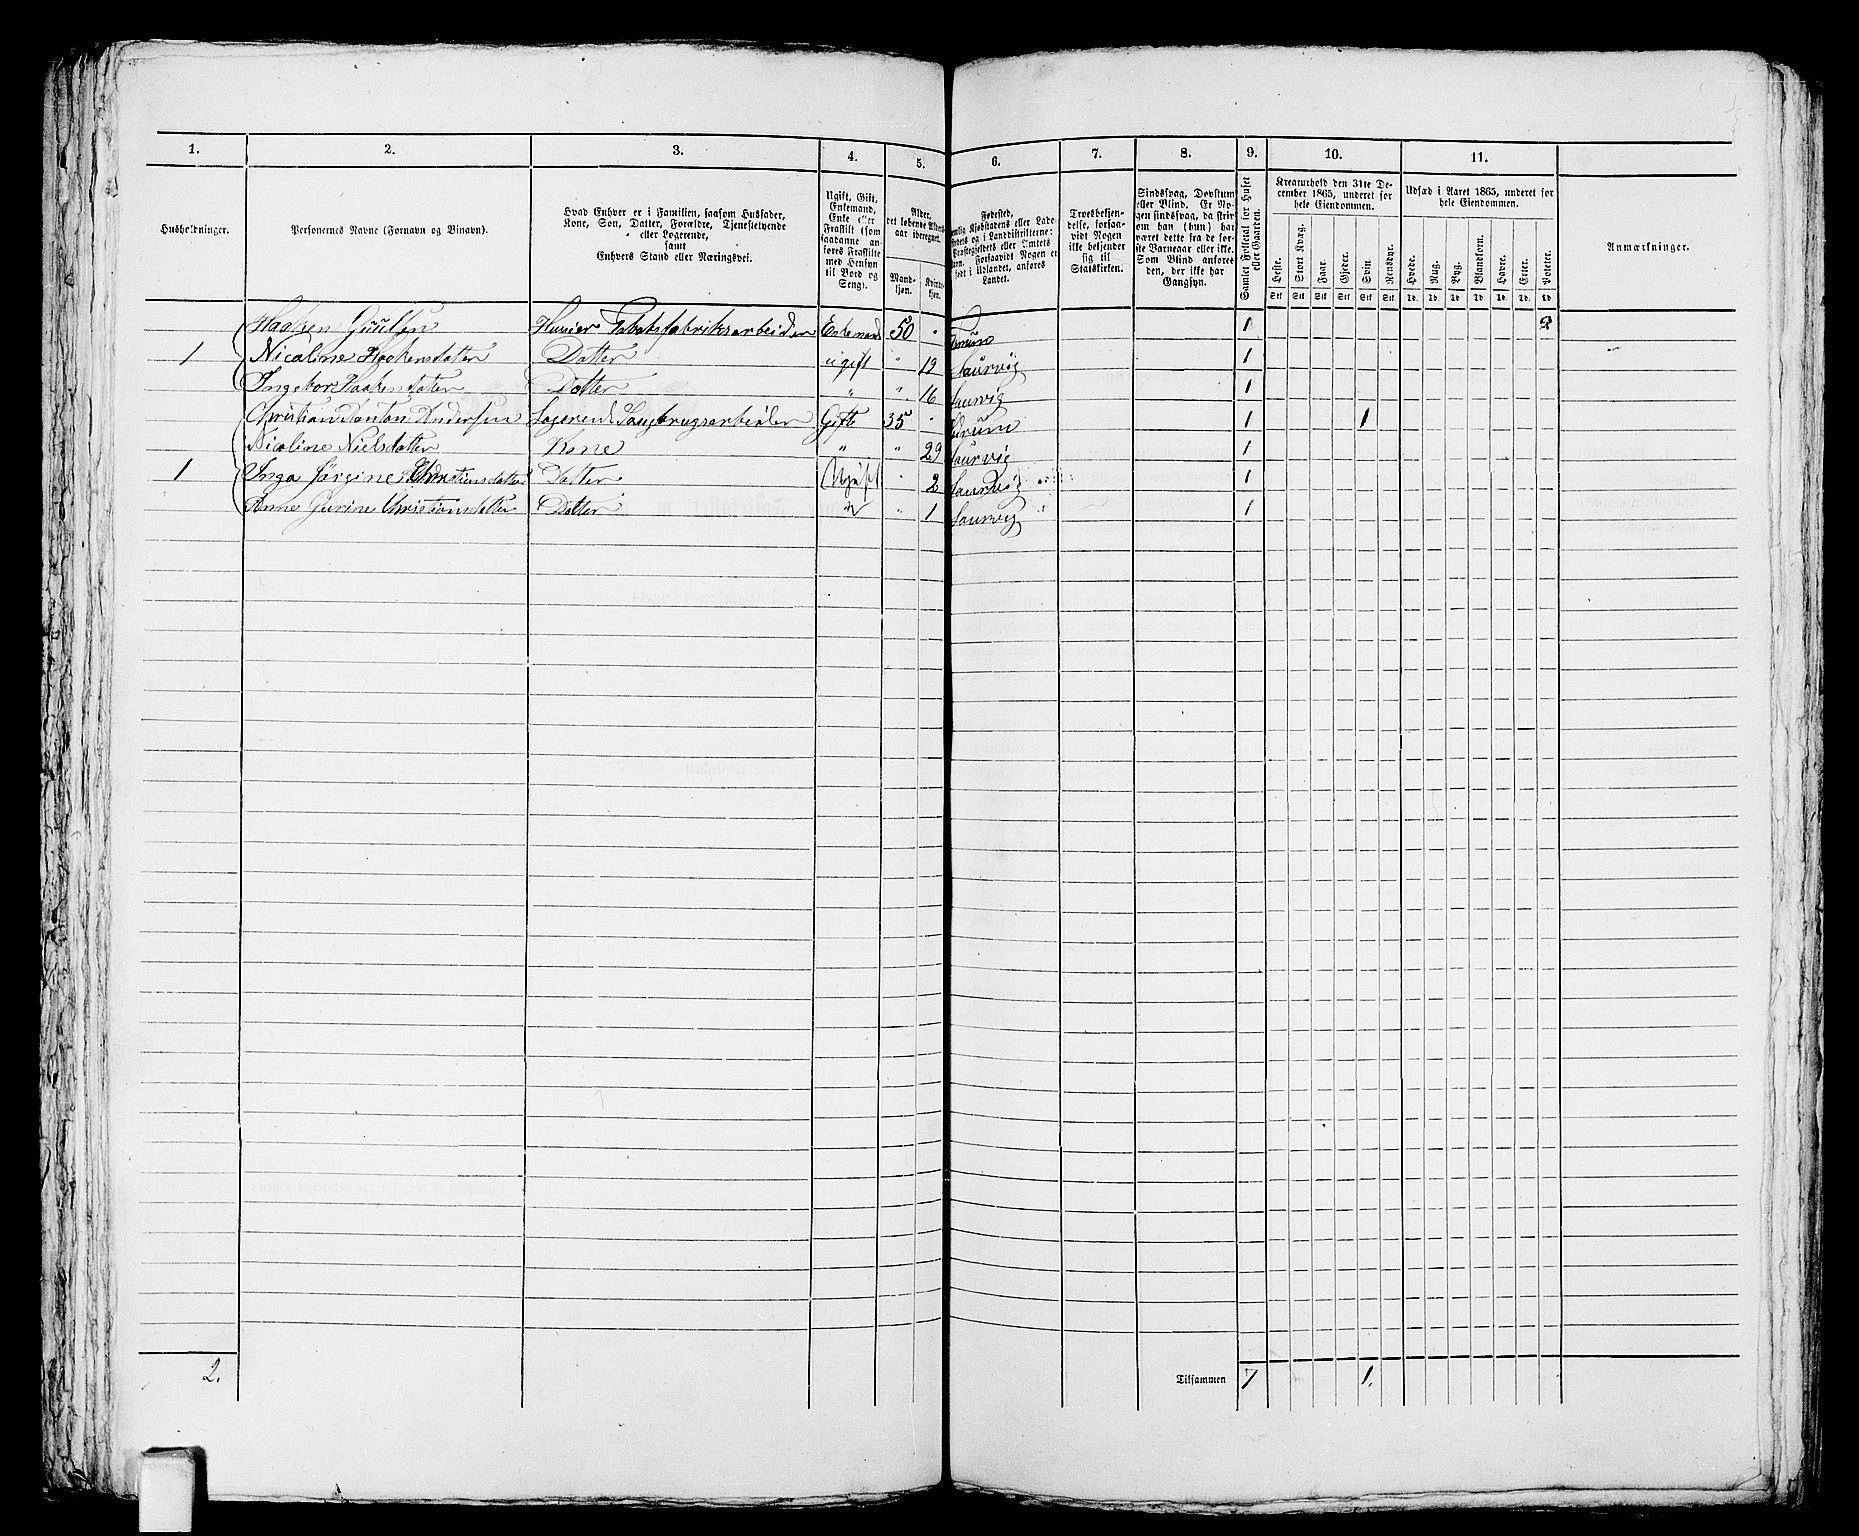 1. 2. 3. 4. 5. 6. 7. 8. 9. 10. 11.
Husholdninger.
Personernes Navne (Fornavn og Binavn).
Hvad Enhver er i Familien, saasom Husfader,
Kone, Søn, Datter, Forældre, Tjenestetyende
eller Logerende,
samt
Enhvers Stand eller Næringsvei.
Ugift, Gift,
Enkemand,
Enke eller
Fraskilt (som
saadanne an-
føres Fraskilte
med Hensyn
til Bord og
Seng).
Alder,
det løbende Alders-
aar iberegnet.
Mand-
kjøn.
Kvinde-
kjøn.
Fødested,
Kjøbstadens eller Lade-
stedets og i Landdistrikterne:
Præstegjeldets eller Amtets
Navn. Forsaavidt Nogen er
født i Udlandet, anføres
Landet.
Troesbekjen-
delse, forsaa-
vidt Nogen
ikke bekjender
sig til
Statskirken.
Sindssvag, Døvstum
eller Blind. Er No-
gen sindssvag, da skriv
om han (hun) har
været dette fra de før-
ste Barneaar eller ikke.
Som Blind anføres
den, der ikke har
Gangsyn.
Samlet Folketal for Huset
eller Gaarden.
Kreaturhold den 31te De-
cember 1865, underet for
hele Eiendommen.
Heste. Stort Kvæg. Faar. Gjeder. Svin. Rensdyr.
Stk Stk Stk Stk Stk Stk
Udsæd i Aaret 1865, underet for
hele Eiendommen.
Hvede. Rug. Byg. Blandkorn. Havre. Erter. Poteter.
Td. Td. Td. Td. Td. Td. Td.
Anmærkninger.
Haaken Huusier Tobaksfabriksarbeider Enkemand 50 " 1 2
1 Nicoline Haakensdatter Datter ugift " 19 Laurvig 1
Ingebor Haakensdatter Datter " " 16 Laurvig 1
Christian Anton Andersen Logerende Saugbrugsarbeider Gift 35 " 1 1
Nicoline Nielsdatter Kone " " 29 Laurvig 1
1 Inga Jørgine Christiansdatter Datter Ugift " 2 Laurvig 1
Anne Gurine Christiansdatter Datter " " 1 Laurvig 1
2. Tilsammen 7 1.